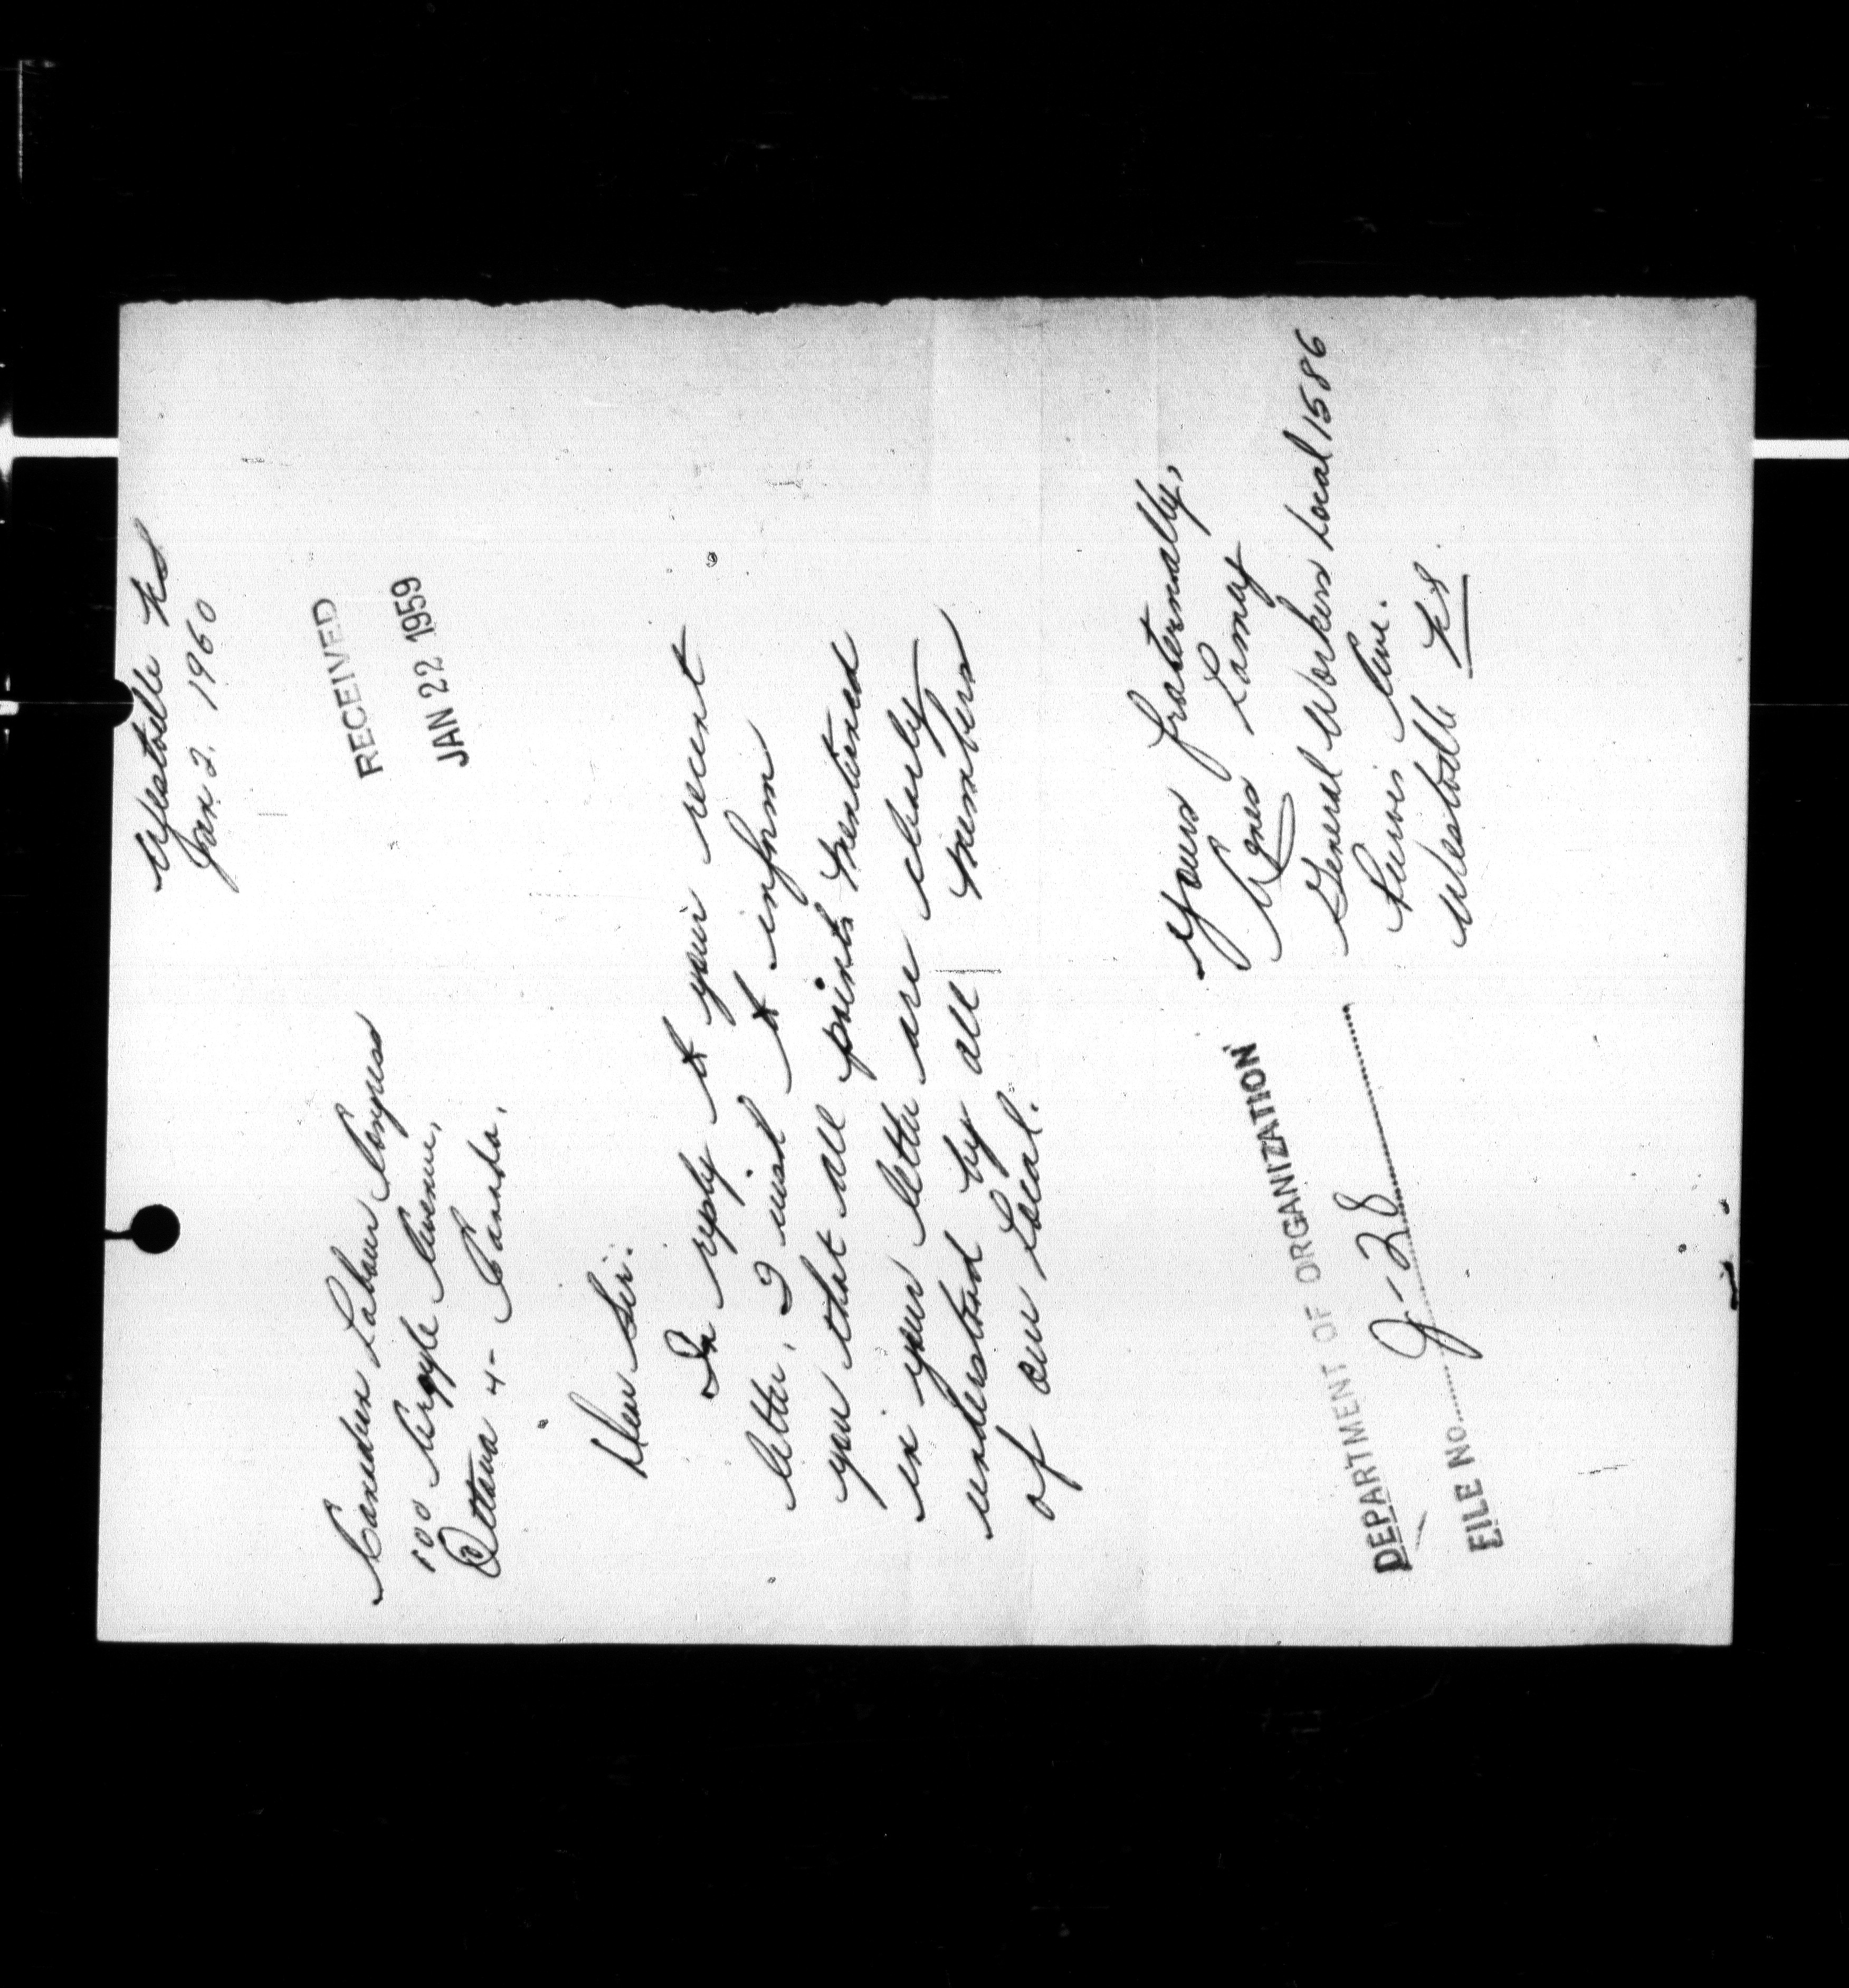 Westville NS
Jan 2. 1960
RECEIVED
JAN 22 1959
Canadian Labour Congress
100 Argyle Avenue,
Ottawa 4 - Canada.
Dear Sir:
In reply to your recent
letter, I wish to inform
you that all points mentioned
in your letter are clearly
understood by all members
of our Local.
Yours fraternally,
Agnes Lamey
General Workers Local 1586
Purvis Ave.
Westville NS.
DEPARTMENT OF ORGANIZATION
FILE NO. G-28